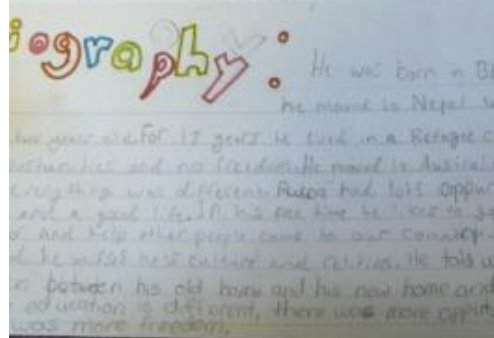 iography:
He was born in B
he moved to Nepal w
two years old. For 17 years he lived in a Refugee c
and no freedom. He moved to
everything was different. had lots oppur
and a good life. In his free time he likes to
and help other people come to our country.
he misses his culture and religion. He told u
between his old home and his new home and
education is different, there was more oppurt
was more freedom.